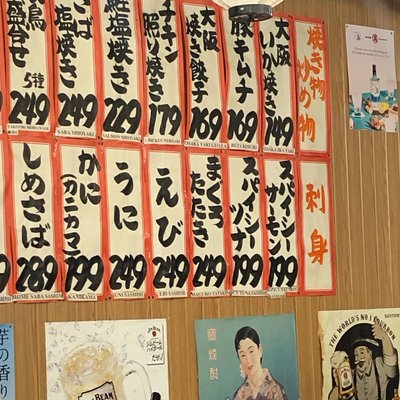 焼き物
炒め物
大阪
いか焼き
149
OSAKA IKA-YAKI
豚キムチ
169
BUTA KIMCHI
大阪
焼き餃子
169
OSAKA YAKI GYOZA
チキン
照り焼き
179
CHICKEN TERIYAKI
鮭塩焼き
229
SALMON SHIOYAKI
さば
塩焼き
249
SABA SHIOYAKI
鳥
盛合せ
5種
249
刺身
スパイシー
サーモン
199
スパイシー
ツナ
199
SPICY TUNA SASHIMI
まぐろ
たたき
249
MAGURO TATAKI
えび
249
EBI SASHIMI
うに
249
UNI SASHIMI
かに
(カニカマ)
199
KANIKAMA
しめさば
289
SHIME SABA SASHIMI
芋の香り
JIM BEAM
THE WORLD'S No.1 BOURBON
SUNTORY
焼酎